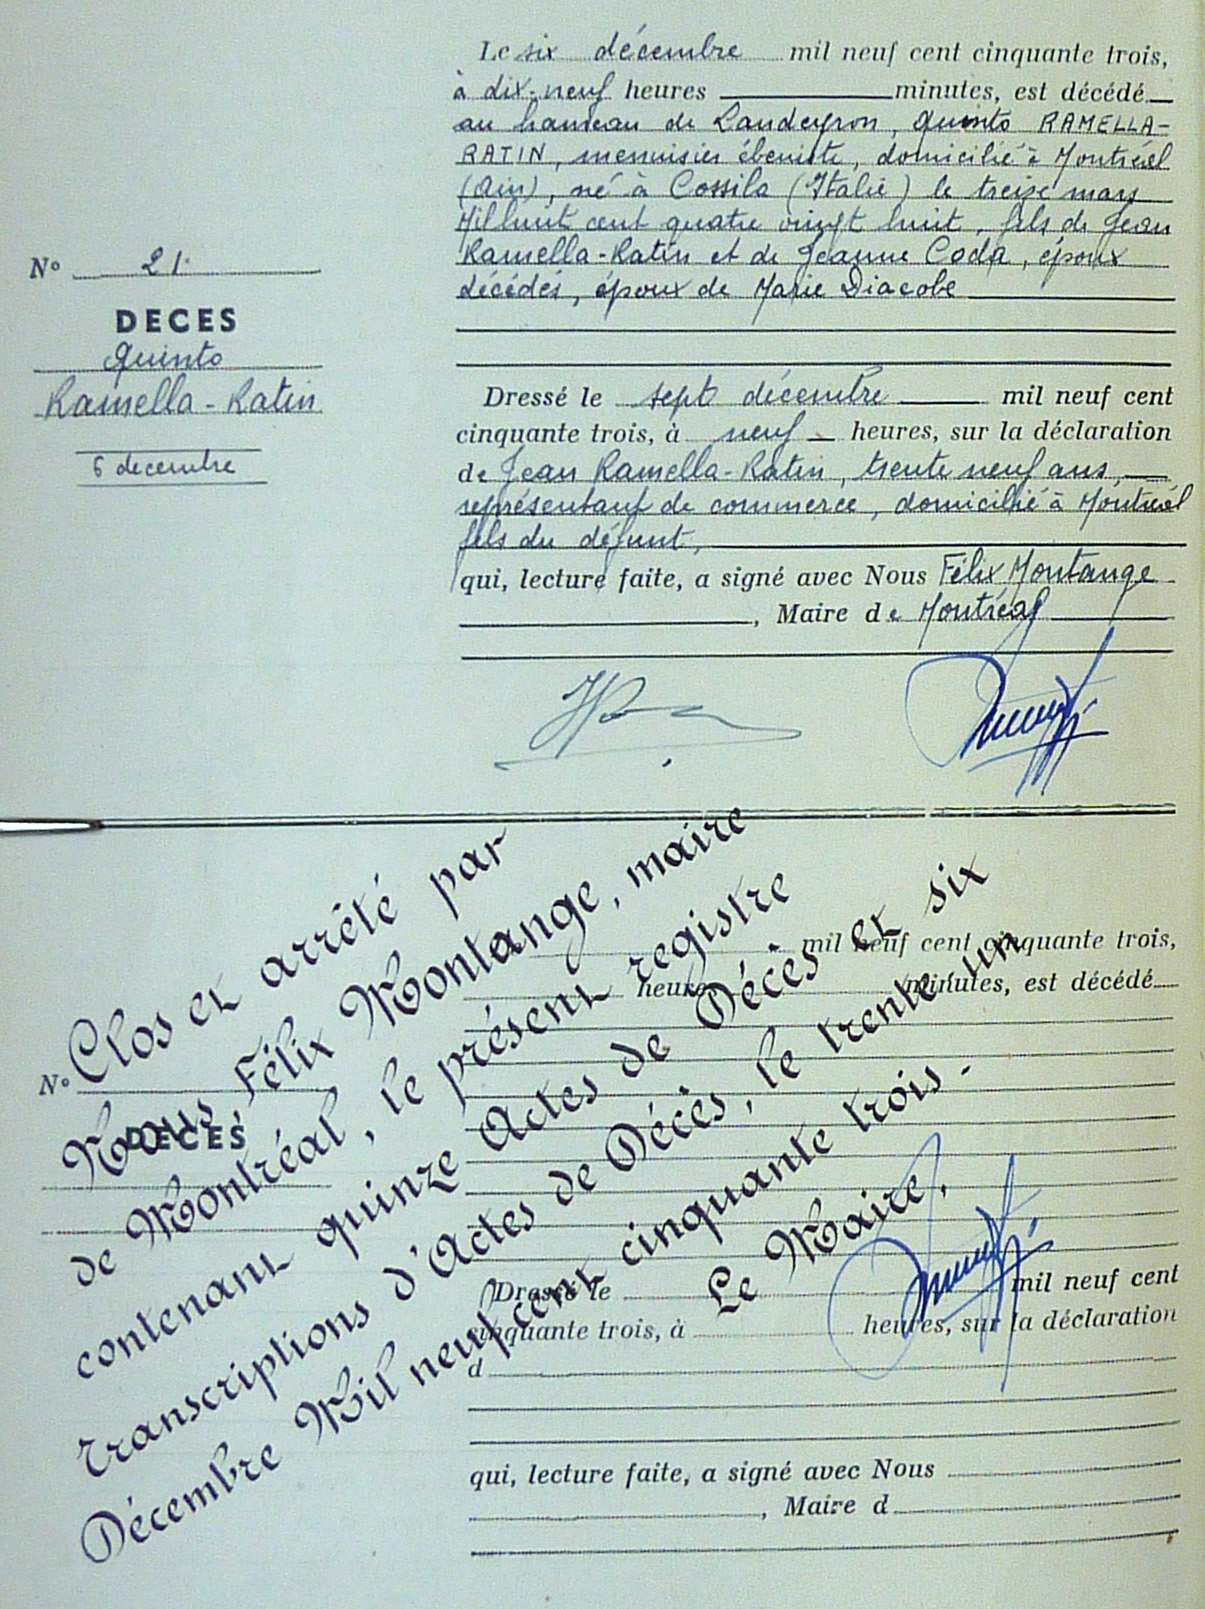 Le six décembre mil neuf cent cinquante trois,
à dix-neuf heures minutes, est décédé
au hameau de Landeyron, Quinto RAMELLA-
RATIN, menuisier ébéniste, domicilié à Montréal
(Ain), né à Cossila (Italie) le treize mars
Mil huit cent quatre vingt huit, fils de Jean
Ramella-Ratin et de Jeanne Coda, époux
décédés, époux de Marie Diacobe
N° 21
DECES
Quinto
Ramella-Ratin
6 decembre
Dressé le sept décembre mil neuf cent
cinquante trois, à neuf heures, sur la déclaration
de Jean Ramella-Ratin, trente neuf ans,
représentant de commerce, domicilié à Montréal
fils du défunt,
qui, lecture faite, a signé avec Nous Félix Montange
, Maire de Montréal
Clos et arrêté par
Nous, Félix Montange, maire
de Montréal, le présent registre
contenant quinze Actes de Décès et six
transcriptions d'Actes de Décès, le trente un
Décembre Mil neuf cent cinquante trois.-
Le Maire,
mil neuf cent cinquante trois,
heures minutes, est décédé
N°
DECES
Dressé le mil neuf cent
cinquante trois, à heures, sur la déclaration
d
qui, lecture faite, a signé avec Nous
, Maire d